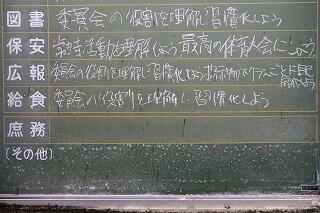 図書 委員会の役割を理解し習慣化しよう
保安 を理解しよう 最高の体育大会にしよう。
広報 委員会の役割を理解し習慣化しよう
給食 委員会の役割りを理解し、習慣化しよう
庶務
(その他)